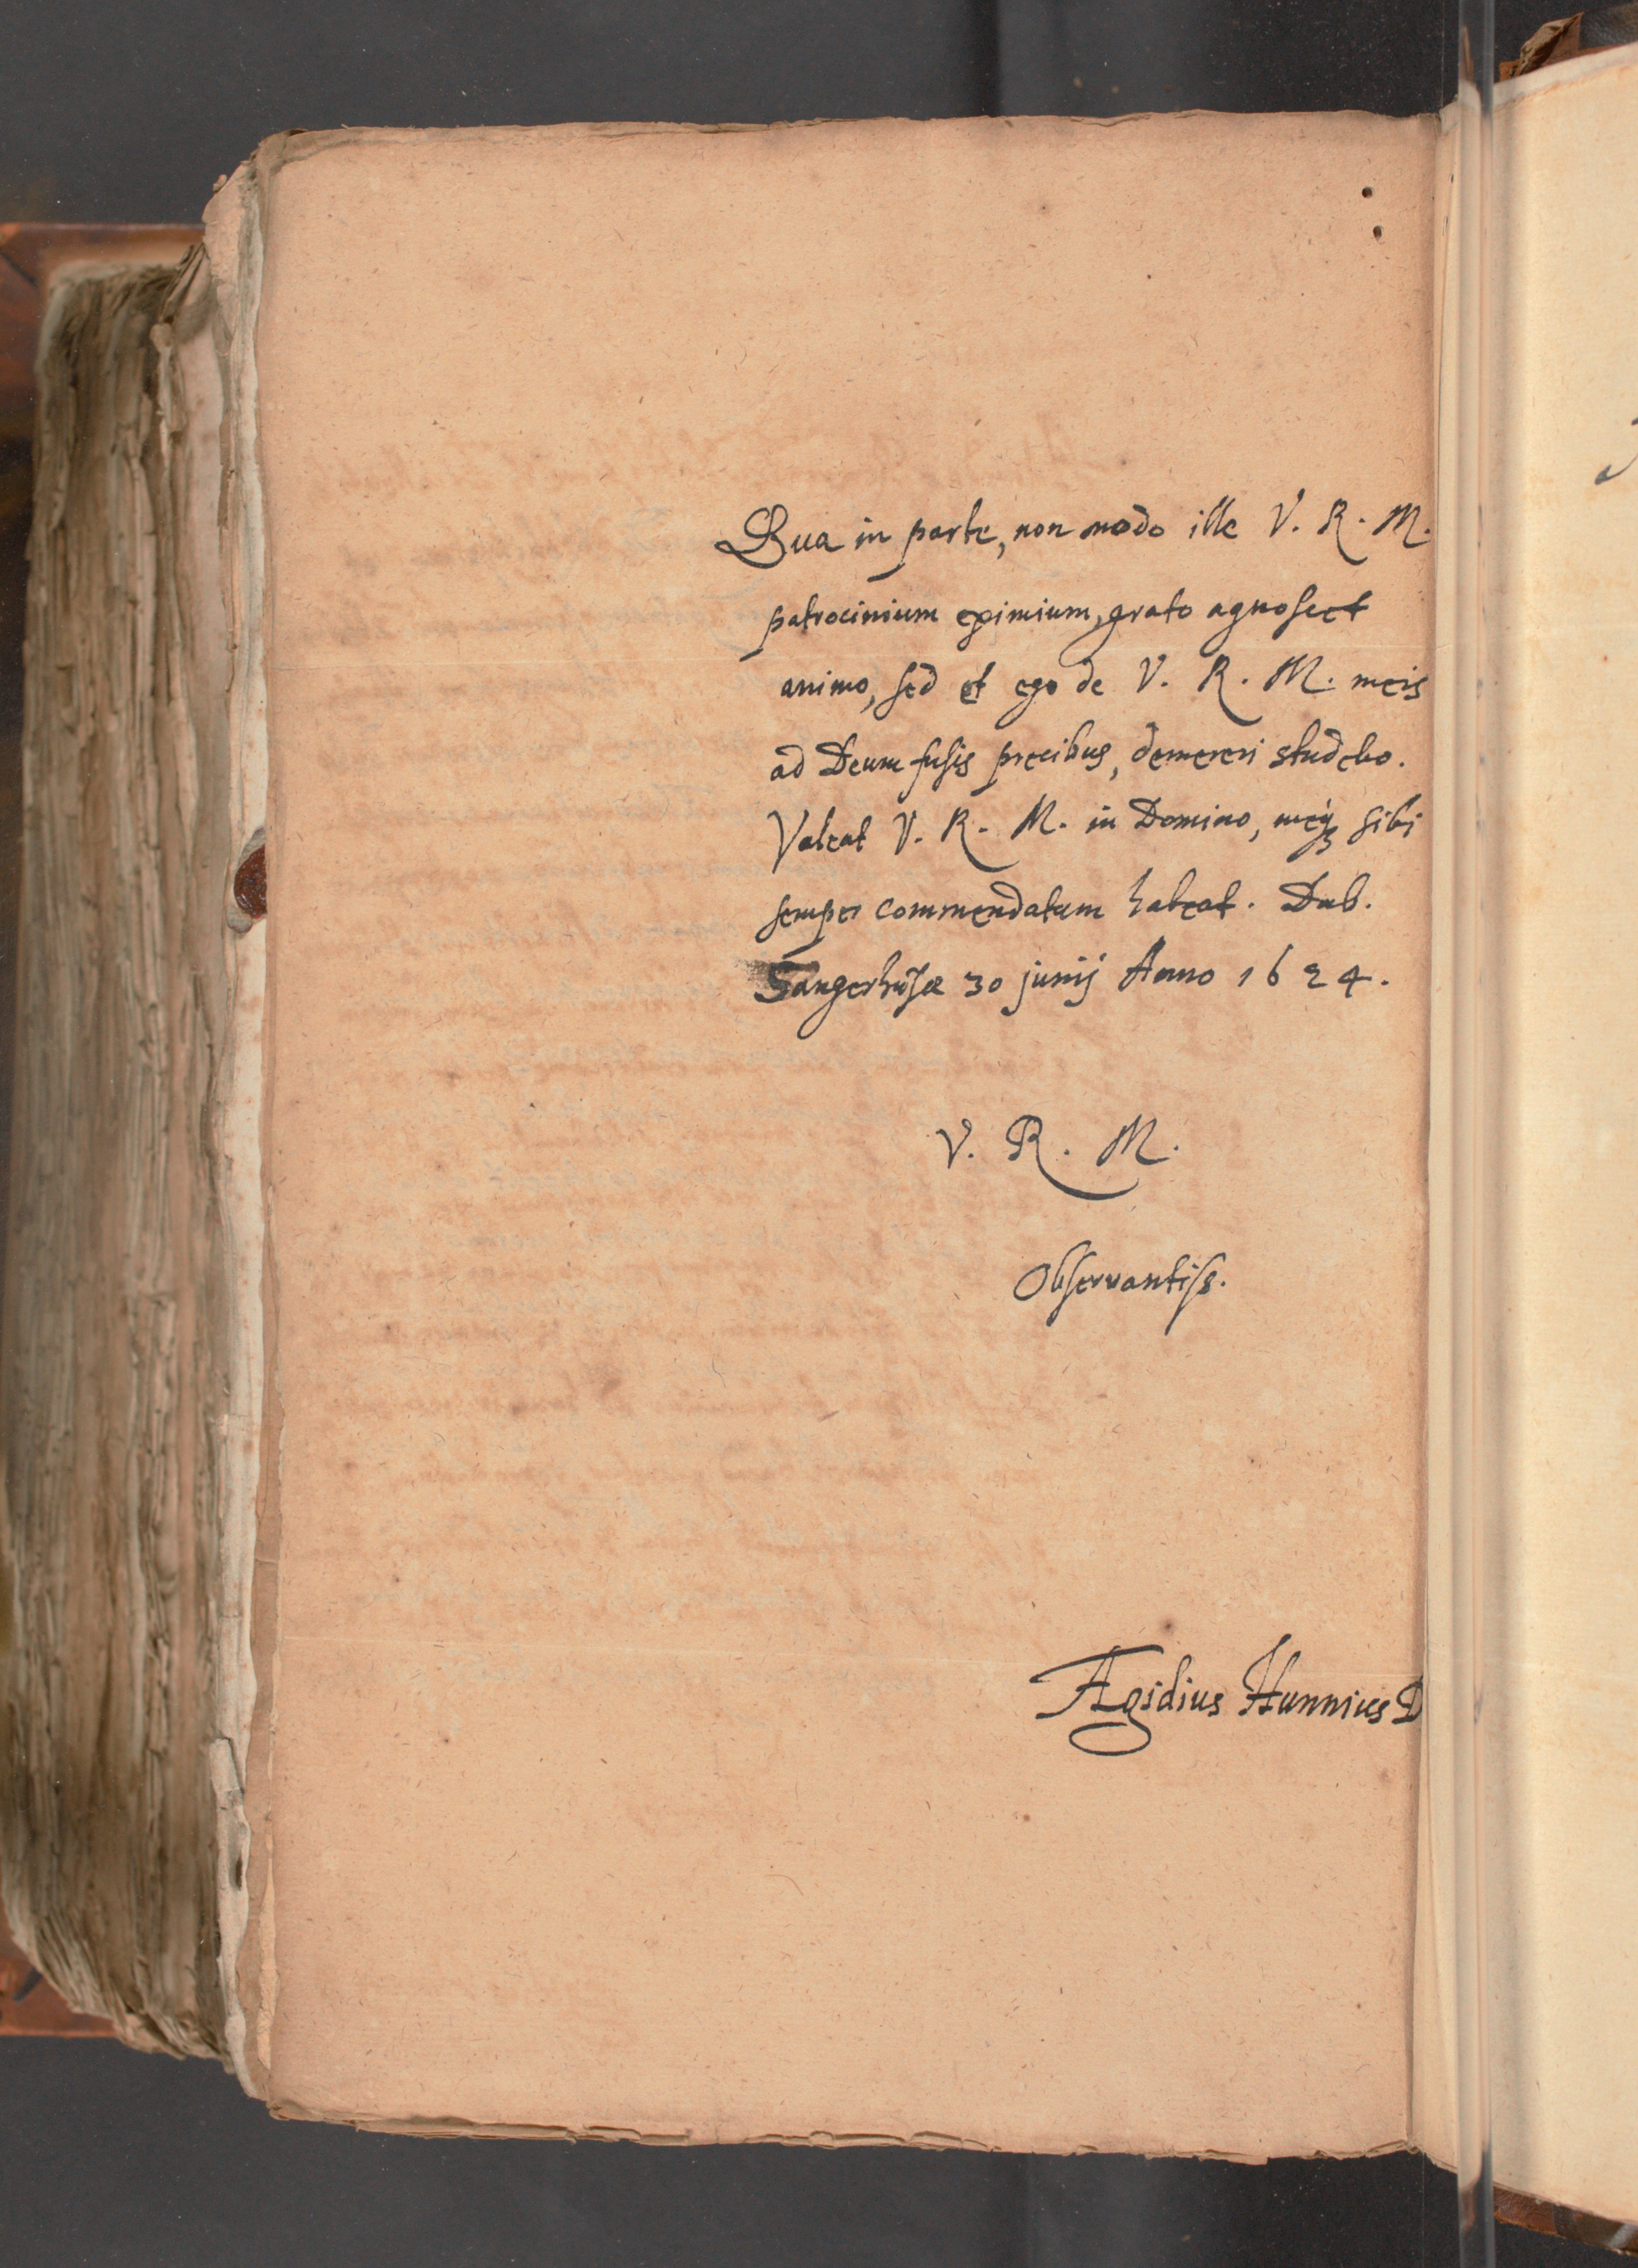 Qua in parte, non modo ille V. R. M.
patrocinium eximium, grato agnoscet
animo, sed et ego de V. R. M. meis
ad Deum fusis precibus, demereri studebo.
Valeat V. R. M. in Domino, meqꝫ sibi
semper commendatum habeat. Dab.
Sangerhusæ 30 junij Anno 1624.
V. R. M.
Observantiss.
Ægidius Hunnius D